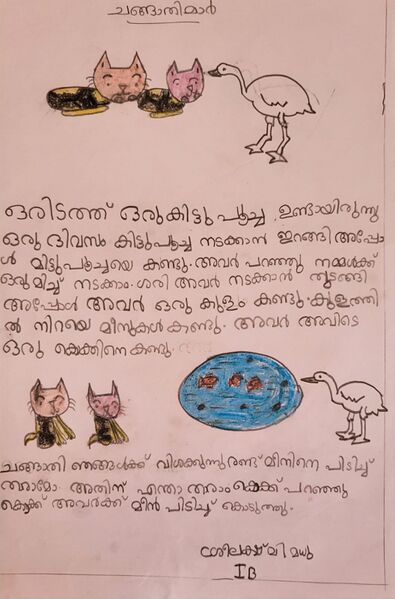 ചങ്ങാതിമാർ
ഒരിടത്ത് ഒരു കിട്ടു പൂച്ച ഉണ്ടായിരുന്നു
ഒരു ദിവസം കിട്ടുപൂച്ച നടക്കാൻ ഇറങ്ങി അപ്പോ
ൾ മിട്ടുപൂച്ചയെ കണ്ടു. അവർ പറഞ്ഞു നമ്മൾക്ക്
ഒരുമിച്ച് നടക്കാം. ശരി അവർ നടക്കാൻ തുടങ്ങി
അപ്പോൾ അവർ ഒരു കുളം കണ്ടു. കുളത്തി
ൽ നിറയെ മീനുകൾ കണ്ടു. അവർ അവിടെ
ഒരു കൊക്കിനെ കണ്ടു.
ചങ്ങാതി ഞങ്ങൾക്ക് വിശക്കുന്നു രണ്ട് മീനിനെ പിടിച്ച്
തരാമോ. അതിന് എന്താ തരാം കൊക്ക് പറഞ്ഞു
കൊക്ക് അവർക്ക് മീൻ പിടിച്ച് കൊടുത്തു.
ശ്രീലക്ഷ്മി മധു
I B